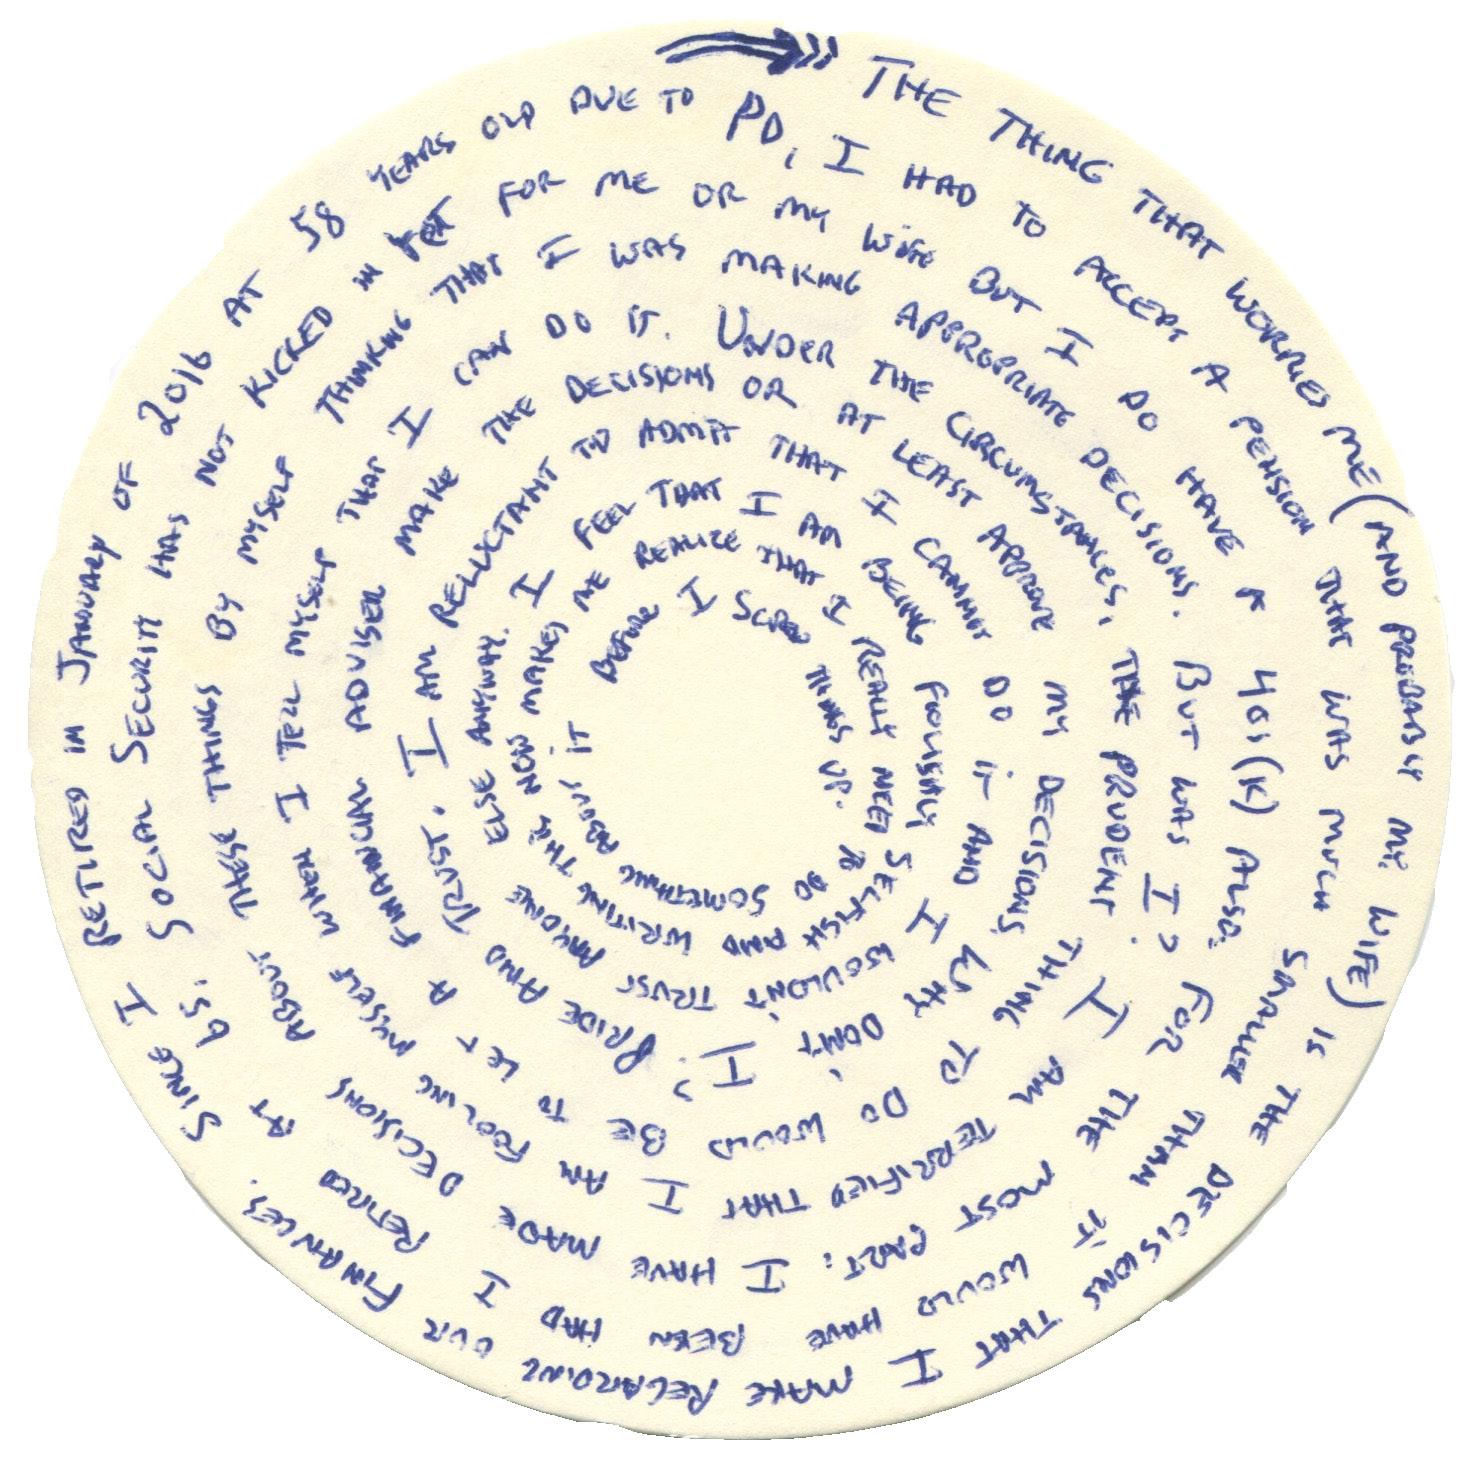 THE THING THAT WORRIES ME (AND PROBABLY MY WIFE) IS THE DECISIONS THAT I MAKE REGARDING OUR FINANCES. SINCE I RETIRED IN JANUARY OF 2016 AT 58 YEARS OLD DUE TO
PD, I HAD TO ACCEPT A PENSION THAT WAS MUCH SMALLER THAN IT WOULD HAVE BEEN HAD I RETIRED AT 65. SOCIAL SECURITY HAS NOT KICKED IN YET FOR ME
OR MY WIFE BUT I DO HAVE A 401(K) ALSO. FOR THE MOST PART, I HAVE MADE DECISIONS ABOUT THESE THINGS BY MYSELF THINKING THAT I WAS
MAKING APPROPRIATE DECISIONS. BUT WAS I? I AM TERRIFIED THAT I AM FOOLING MYSELF WHEN I TELL MYSELF THAT I CAN DO IT.
UNDER THE CIRCUMSTANCES, THE PRUDENT THING TO DO WOULD BE TO LET A FINANCIAL ADVISER MAKE THE DECISIONS
OR AT LEAST APPROVE MY DECISIONS. WHY DON'T I? PRIDE AND TRUST. I AM RELUCTANT TO ADMIT
THAT I CANNOT DO IT AND I WOULDN'T TRUST ANYONE ELSE ANYWAY. I FEEL THAT
I AM BEING FOOLISHLY SELFISH AND WRITING THIS NOW MAKES ME REALIZE
THAT I REALLY NEED TO DO SOMETHING ABOUT IT BEFORE I
SCREW THINGS UP.